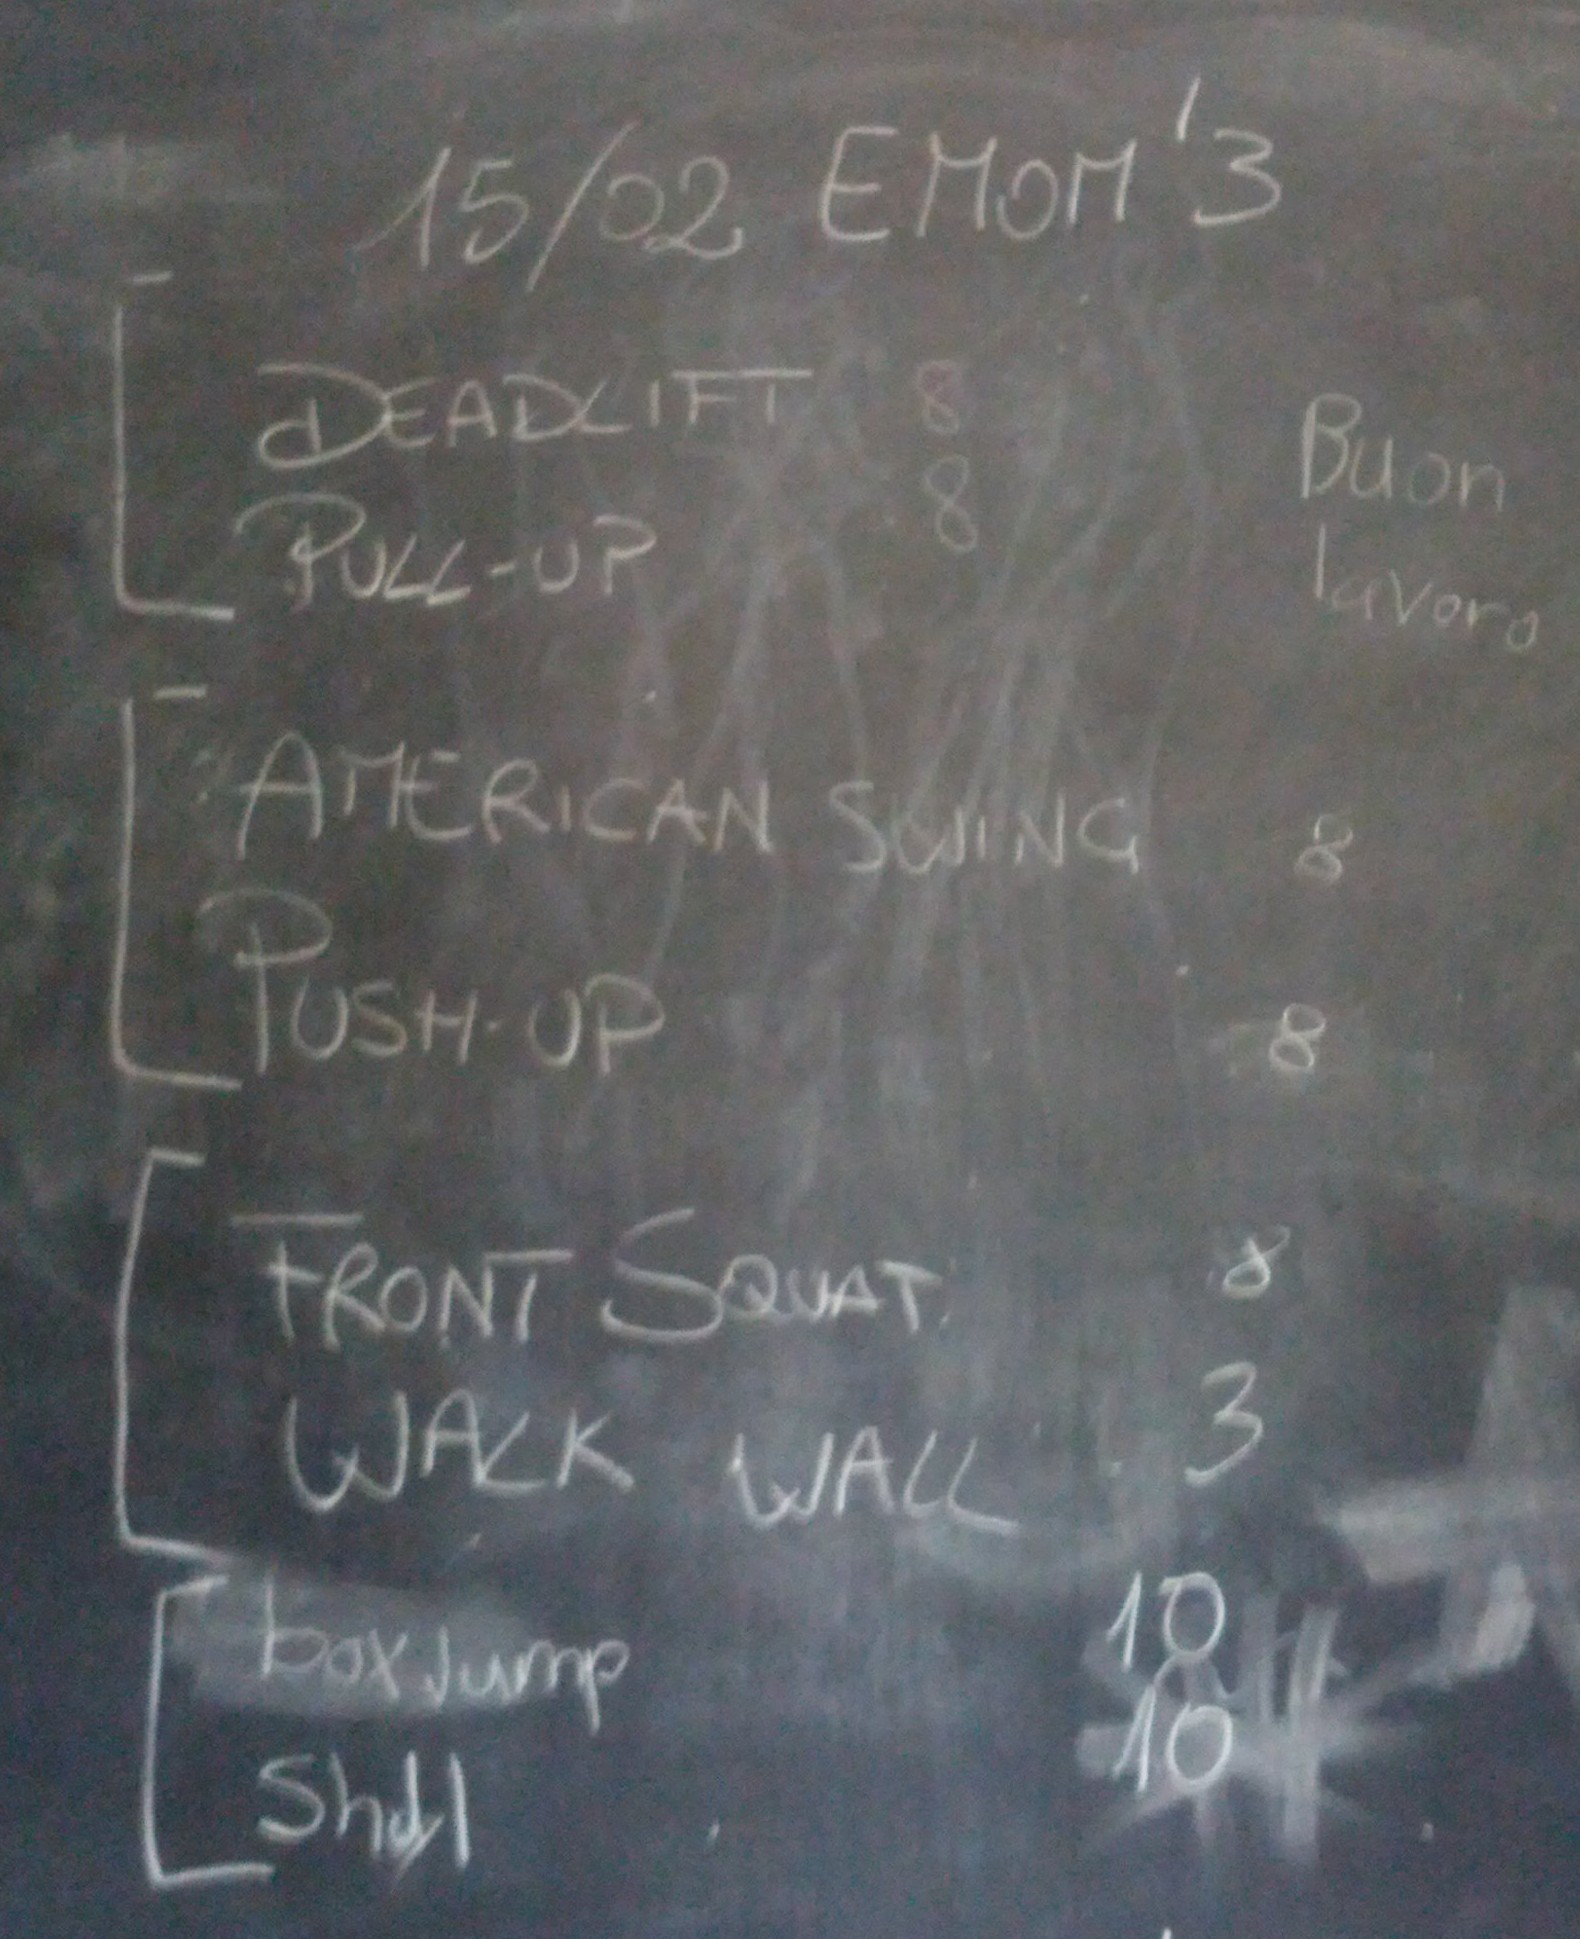 15/02 EMOM '3
DEADLIFT 8
PULL-UP 8
Buon
lavoro
AMERICAN SWING 8
PUSH-UP 8
FRONT SQUAT 8
WALK WALL 3
box Jump 10
10